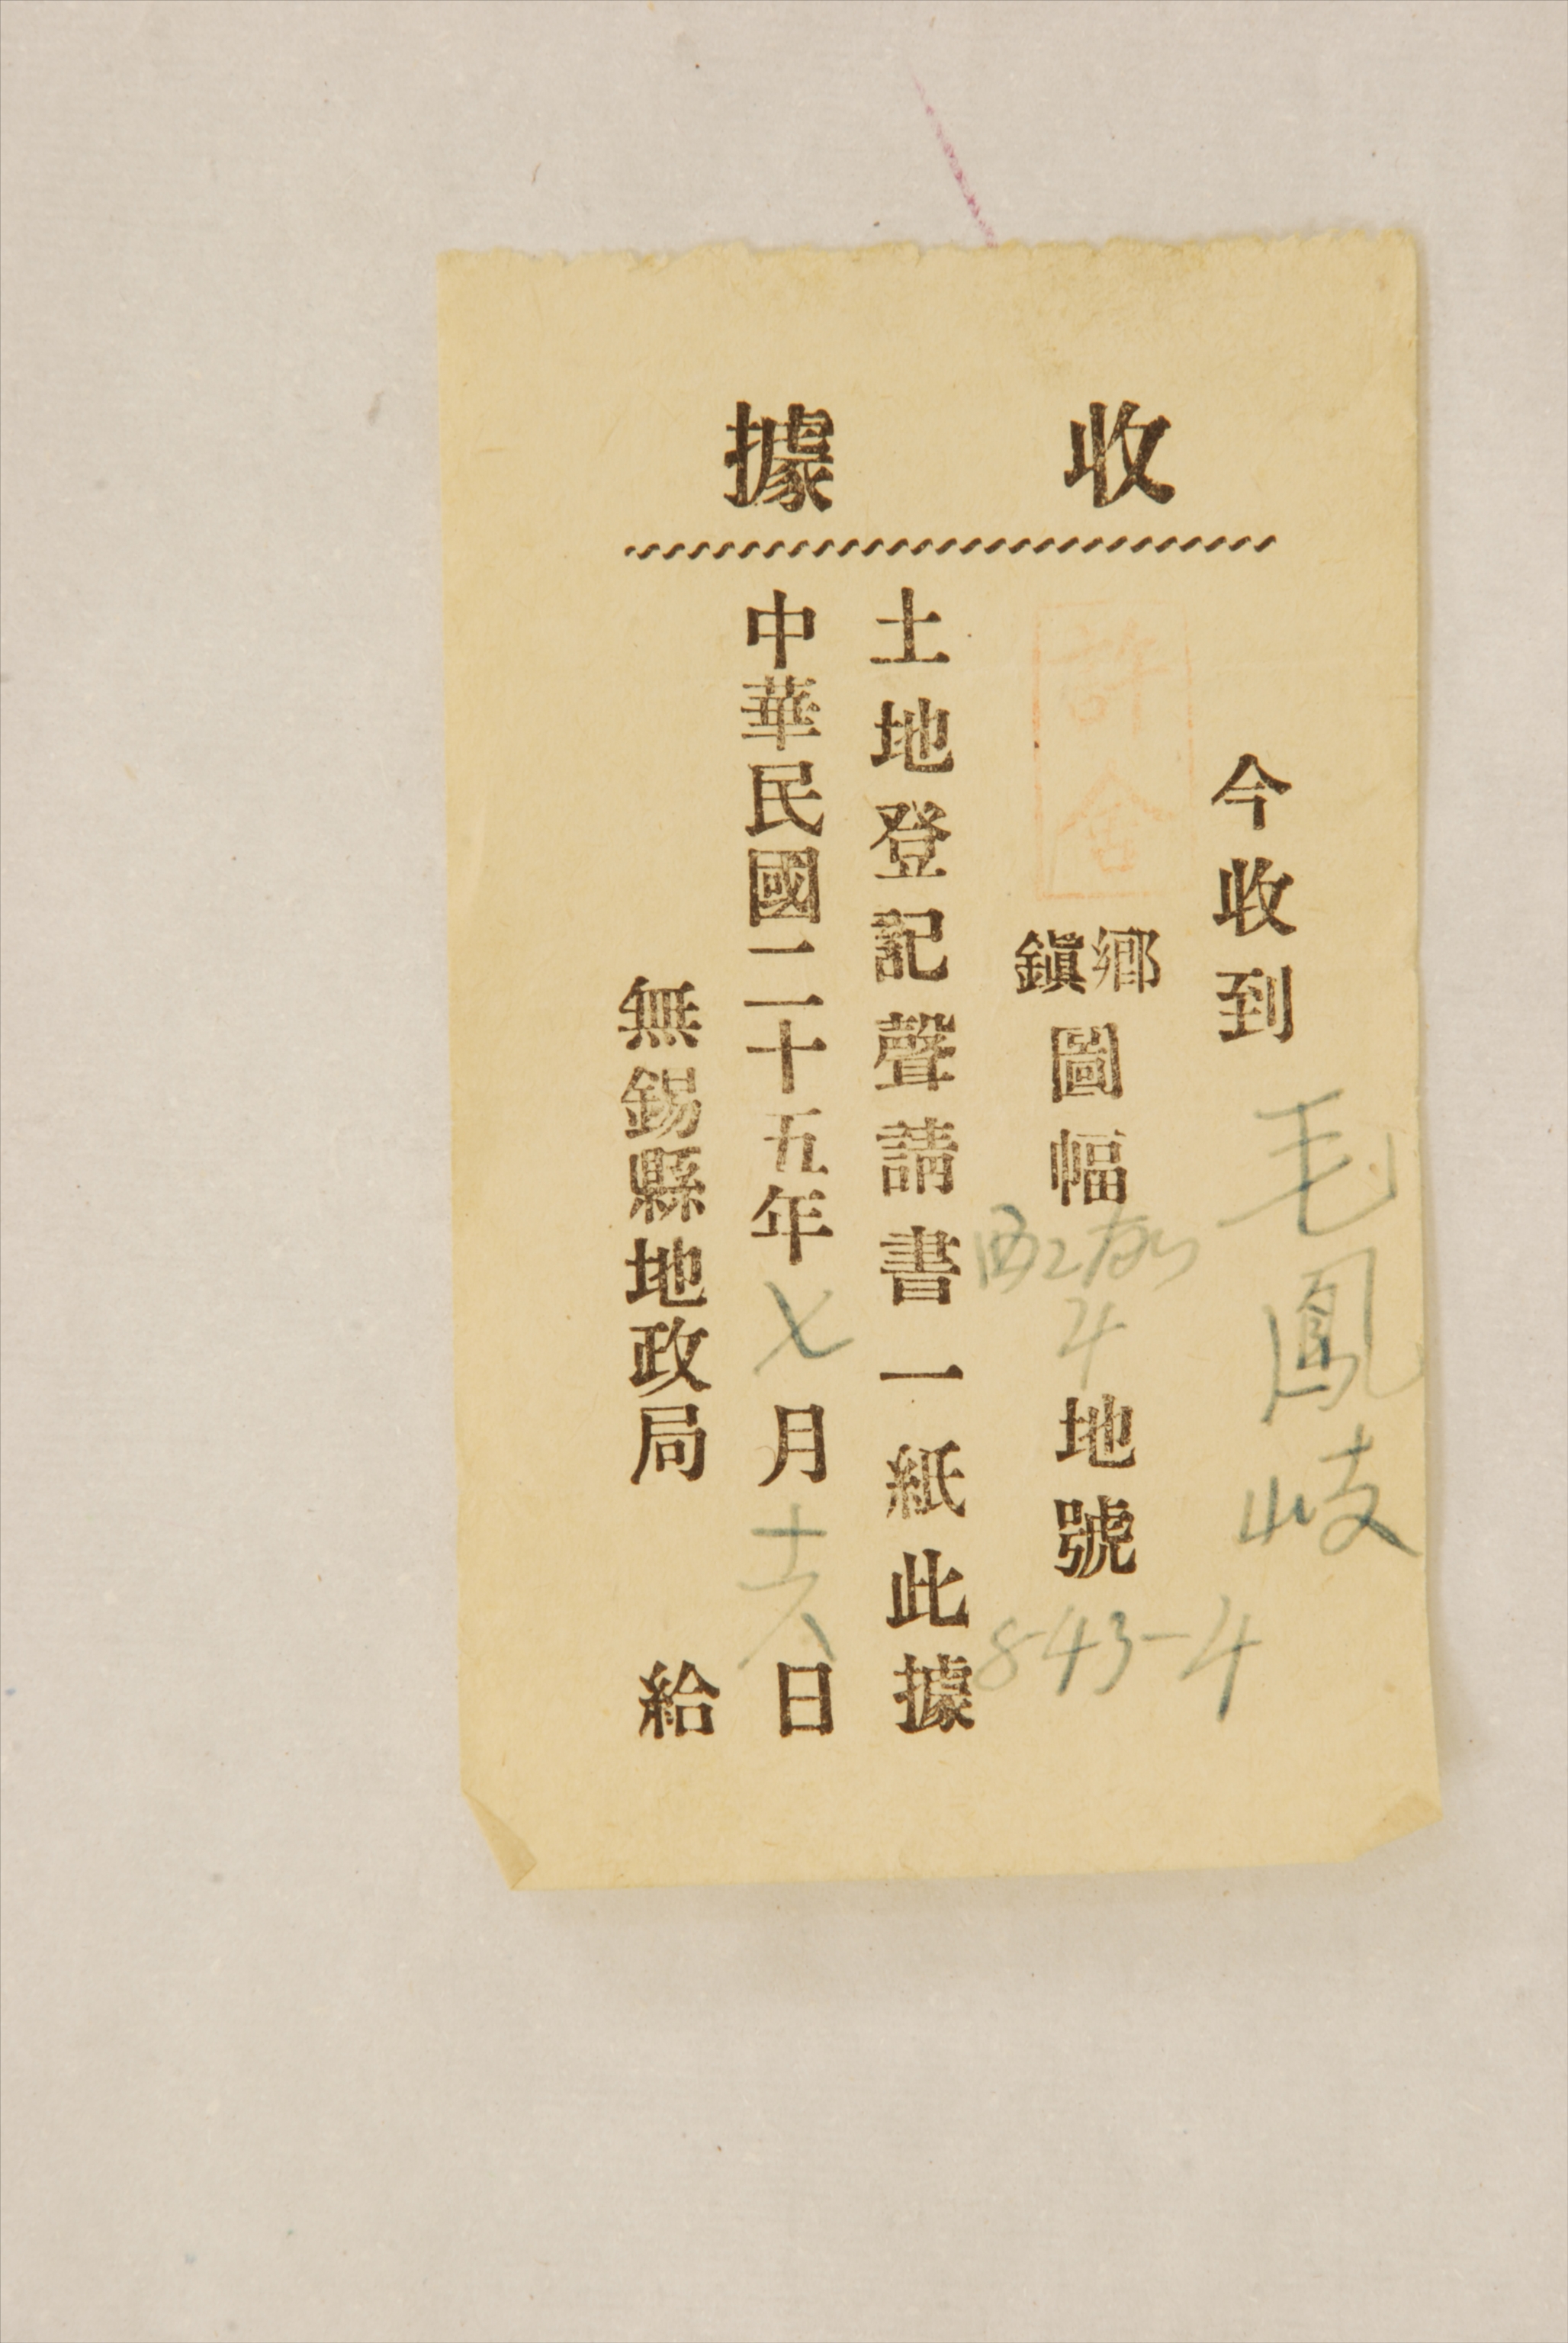 收據
今收到毛鳳岐
許舍鄉鎮圖幅西2南4地號843-4
土地登記聲請書一紙此據
中華民國二十五年七月十六日
無錫縣地政局給